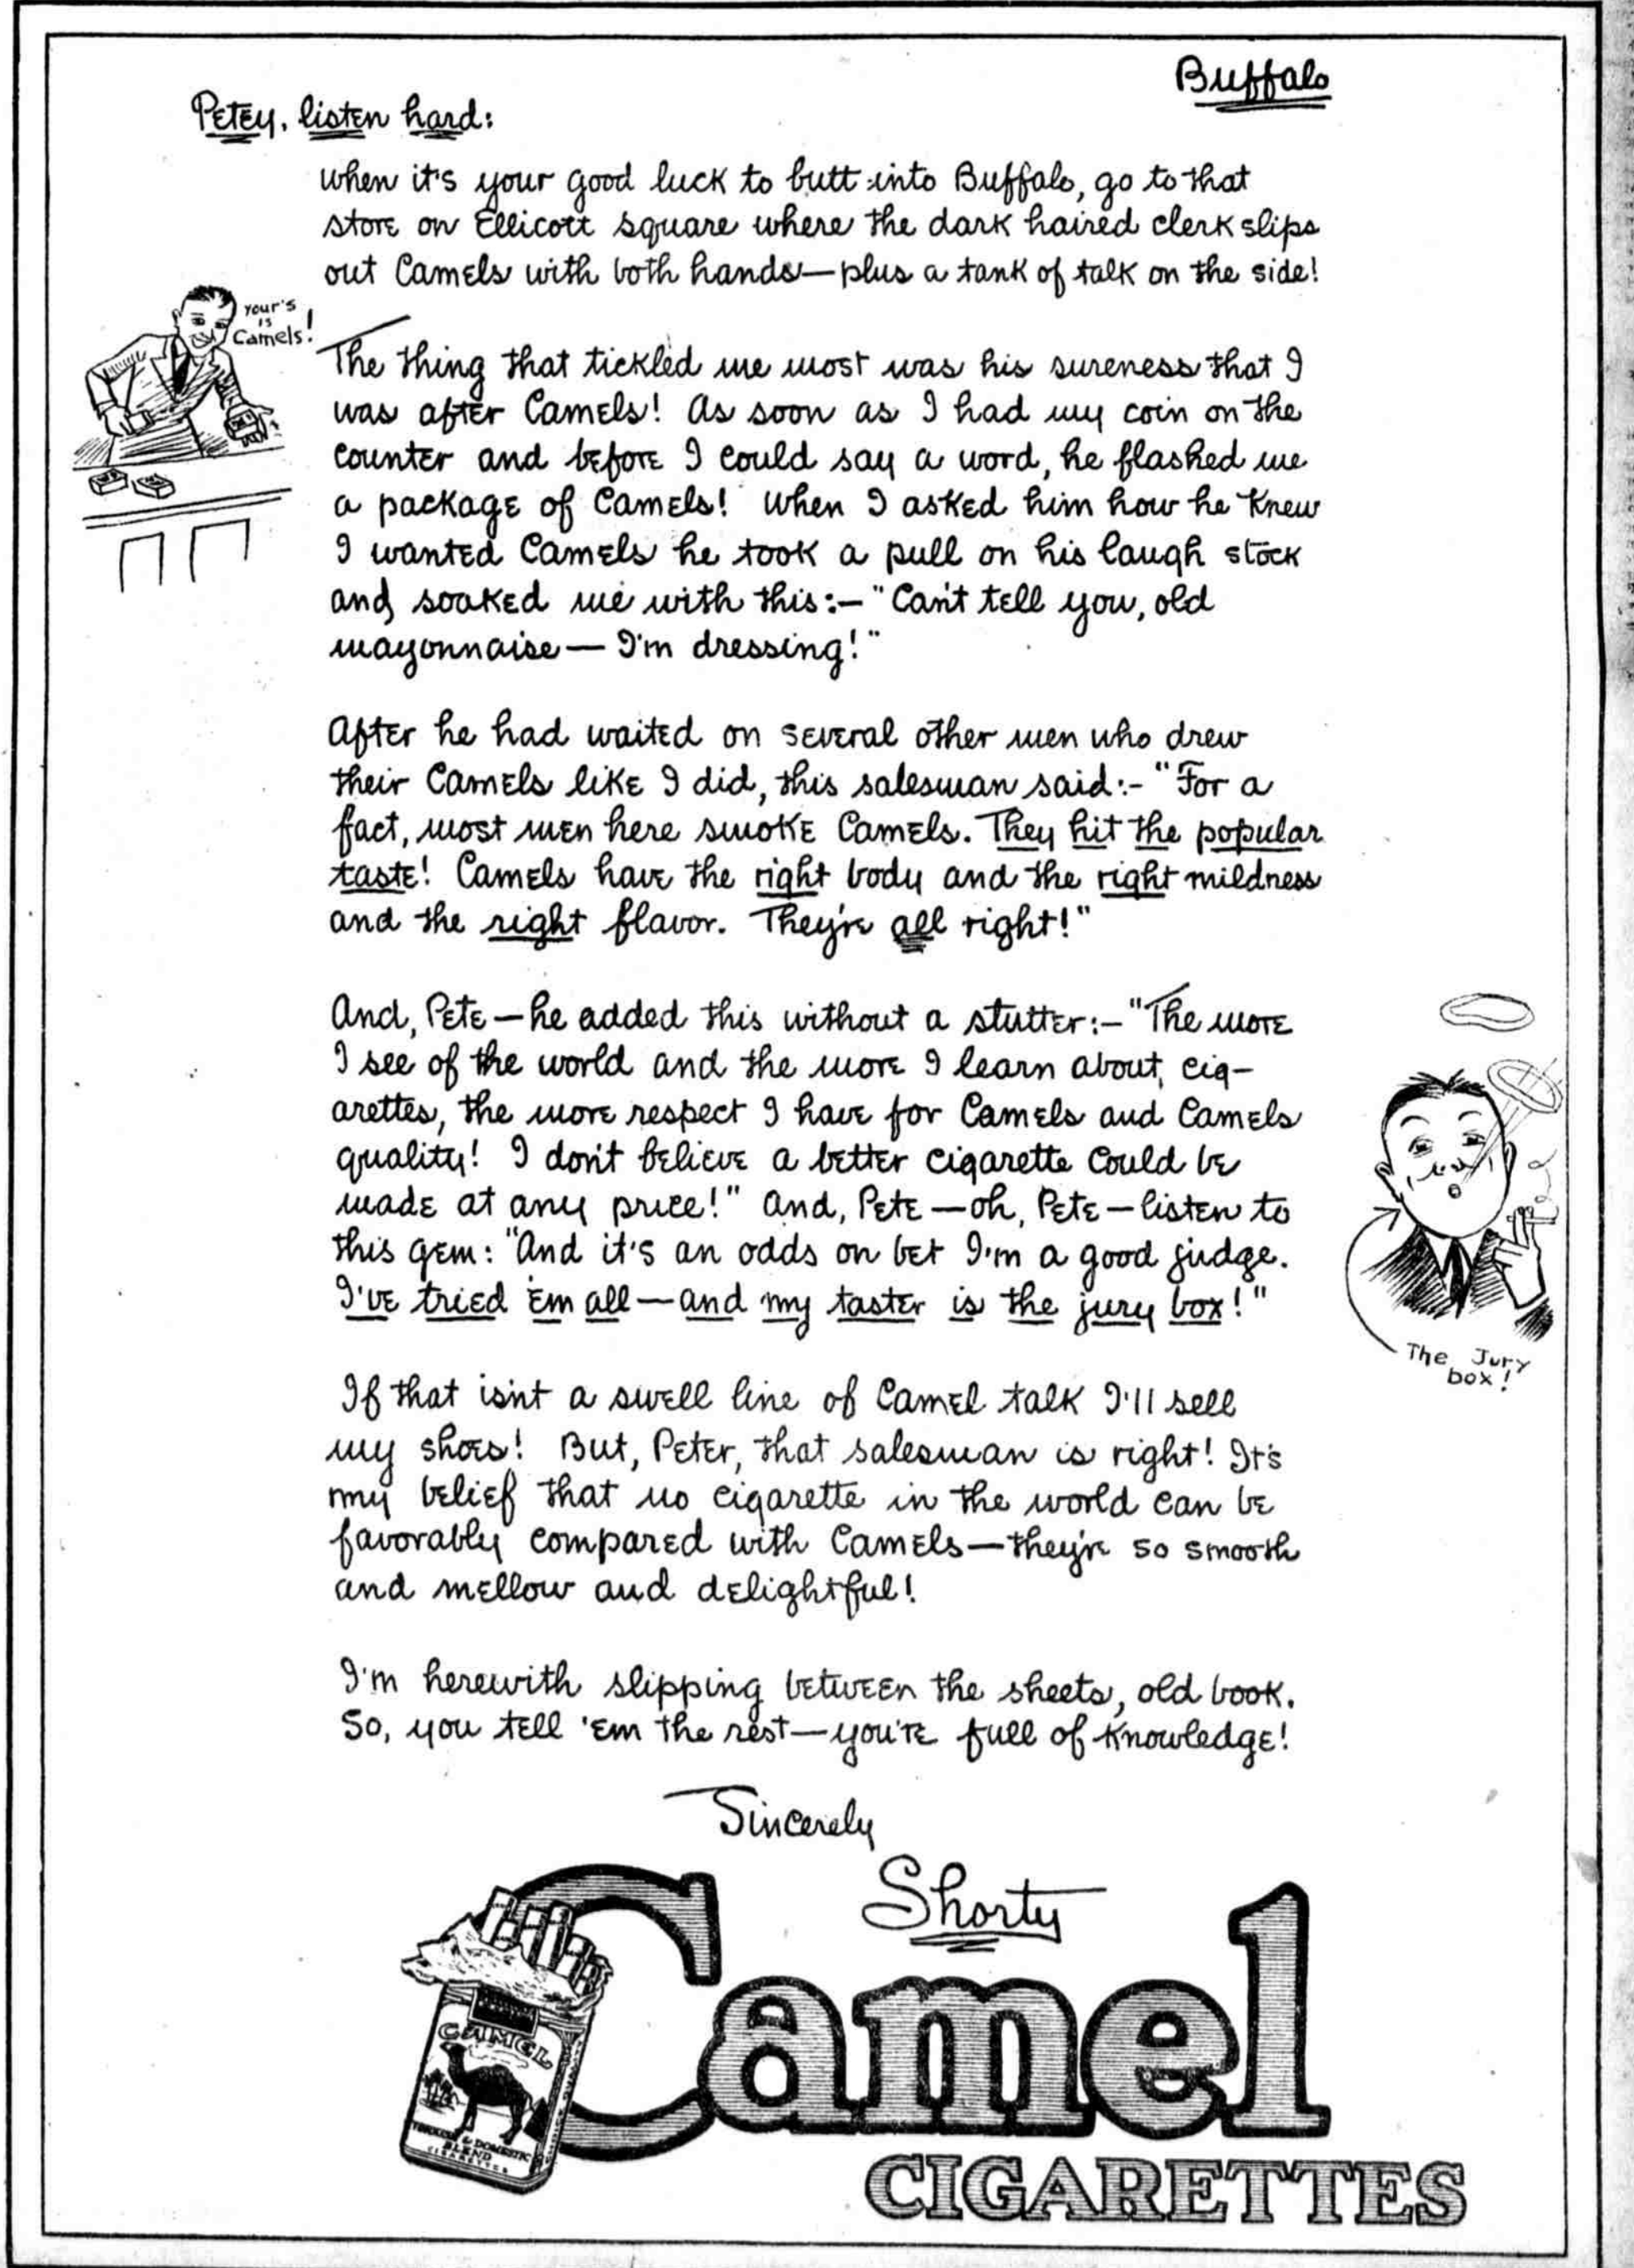 Buffalo
Petey, listen hard:
When it's your good luck to butt into Buffalo, go to that
store on Ellicott square where the dark haired clerk slips
out Camels with both hands—plus a tank of talk on the side!
Your's
is
Camels!
The thing that tickled me most was his sureness that I
was after Camels! As soon as I had my coin on the
counter and before I could say a word, he flashed me
a package of Camels! When I asked him how he knew
I wanted Camels he took a pull on his laugh stock
and soaked me with this:— "Can't tell you, old
mayonnaise— I'm dressing!"
After he had waited on several other men who drew
their Camels like I did, this salesman said:- "For a
fact, most men here smoke Camels. They hit the popular
taste! Camels have the right body and the right mildness
and the right flavor. They're all right!"
And, Pete—he added this without a stutter:— "The more
I see of the world and the more I learn about cig-
arettes, the more respect I have for Camels and Camels
quality! I don't believe a better cigarette could be
made at any price!" And, Pete—oh, Pete—listen to
this gem: "And it's an odds on bet I'm a good judge.
I've tried 'em all—and my taster is the jury box!"
The Jury
box!
If that isn't a swell line of Camel talk I'll sell
my shoes! But, Peter, that salesman is right! It's
my belief that no cigarette in the world can be
favorably compared with Camels—they're so smooth
and mellow and delightful!
I'm herewith slipping between the sheets, old book.
So, you tell 'em the rest—you're full of knowledge!
Sincerely
Shorty
Camel
CIGARETTES
CAMEL
TURKISH & DOMESTIC
BLEND
CIGARETTES